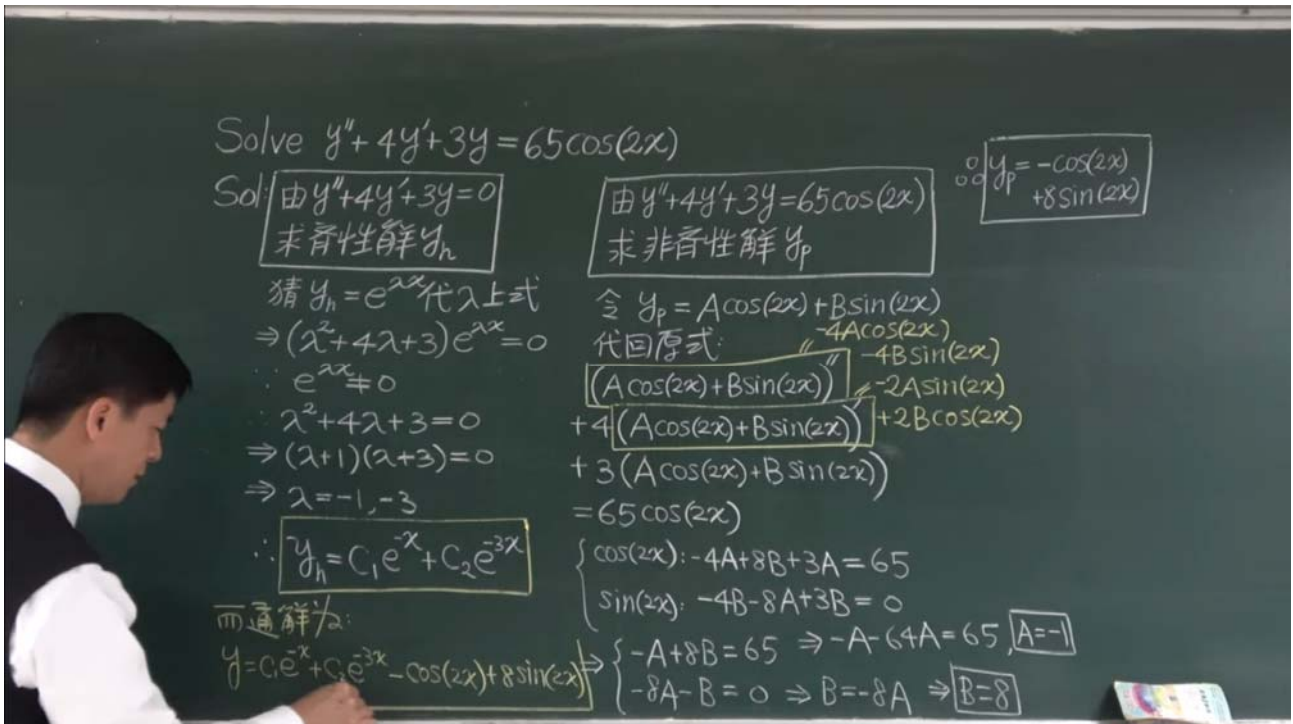 Solve y''+4y'+3y=65cos(2x)
Sol: 由y''+4y'+3y=0
求齊性解 y_h
猜 y_h=e^{λx}代入上式
⇒(λ²+4λ+3)e^{λx}=0
∵ e^{λx}≠0
∴ λ²+4λ+3=0
⇒(λ+1)(λ+3)=0
⇒ λ=-1,-3
∴ y_h=C₁e^{-x}+C₂e^{-3x}
而通解為:
y=C₁e^{-x}+C₂e^{-3x}-cos(2x)+8sin(2x)
由y''+4y'+3y=65cos(2x)
求非齊性解 y_p
令 y_p=Acos(2x)+Bsin(2x)
代回原式:
(Acos(2x)+Bsin(2x))''
= -4Acos(2x)
-4Bsin(2x)
+4(Acos(2x)+Bsin(2x))'
= -2Asin(2x)
+2Bcos(2x)
+3(Acos(2x)+Bsin(2x))
=65cos(2x)
cos(2x): -4A+8B+3A=65
sin(2x): -4B-8A+3B=0
⇒ -A+8B=65 ⇒ -A-64A=65, A=-1
-8A-B=0 ⇒ B=-8A ⇒ B=8
∴ y_p=-cos(2x)
+8sin(2x)